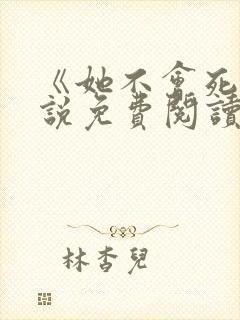 《她不會死
說免費閱讀
林杏兒